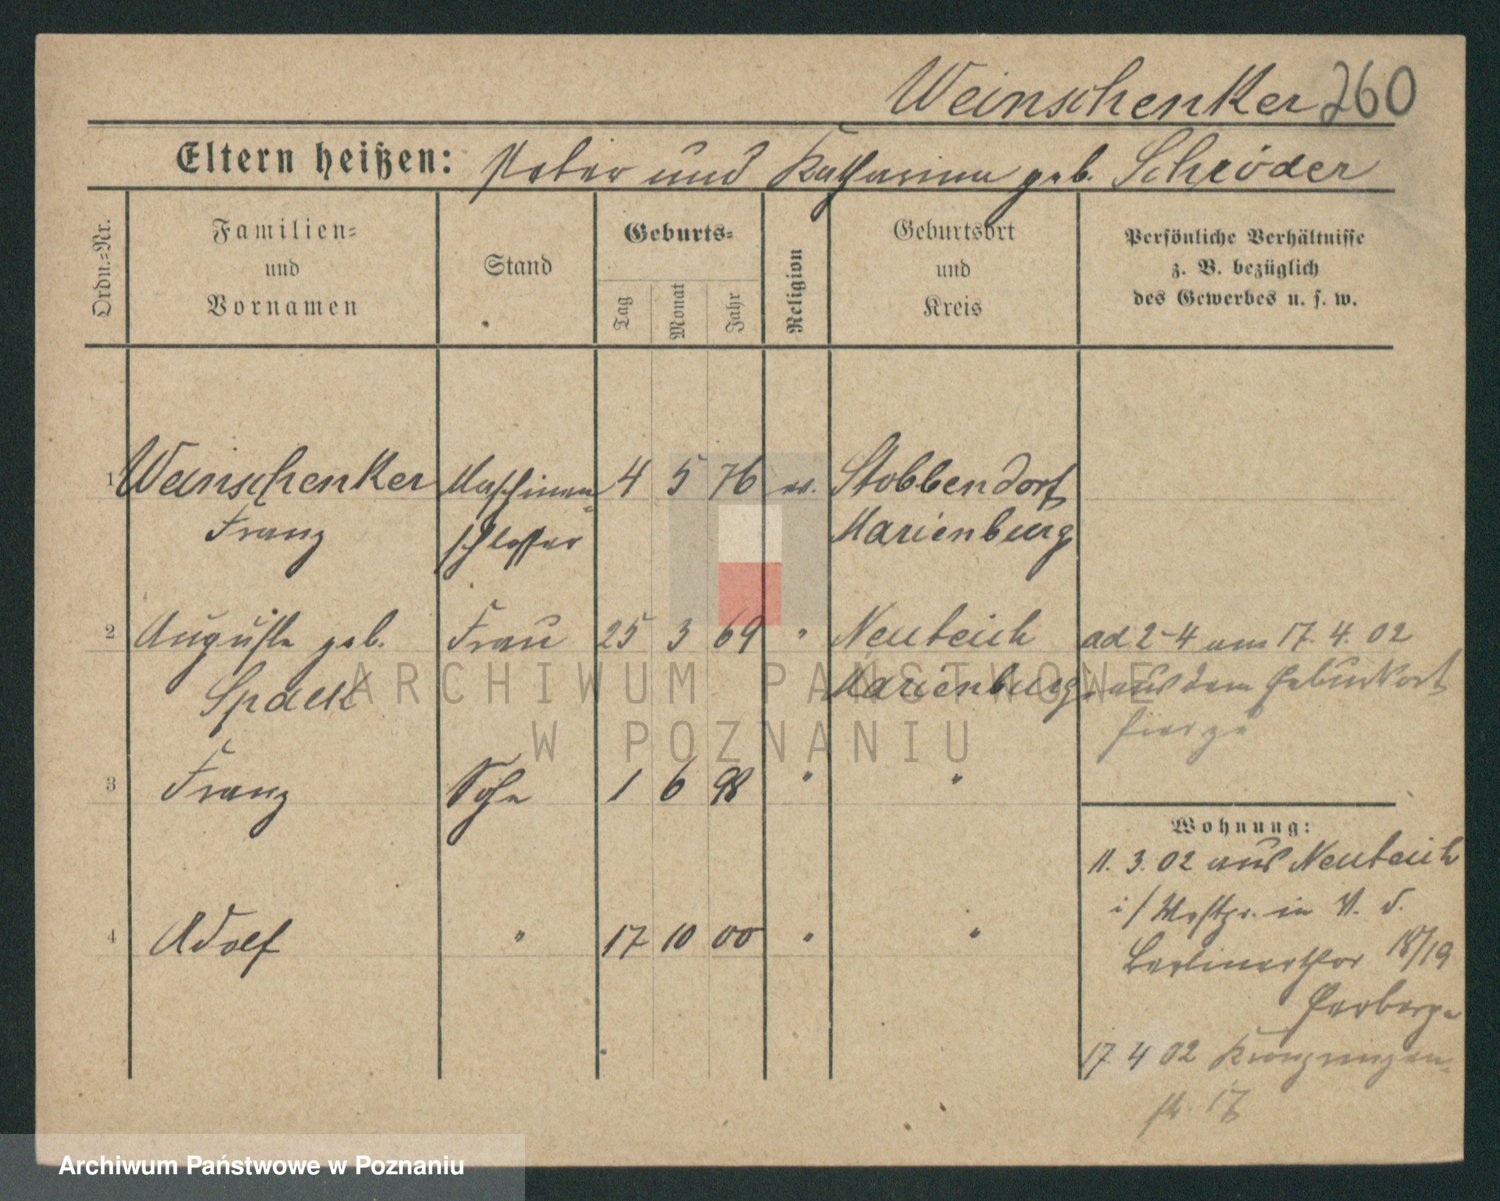 Weinschenker 260
Eltern heißen: Peter und Katharina geb. Schröder
Ordn.-Nr.
Familien-
und
Vornamen
Stand
Geburts-
Tag
Monat
Jahr
Religion
Geburtsort
und
Kreis
Persönliche Verhältnisse
z. B. bezüglich
des Gewerbes u. s. w.
1 Weinschenker Maschinen- 4 5 76 ev. Stobbendorf
Franz schlosser Marienburg
2 Auguste geb. Frau 25 3 69 " Neuteich ad 2-4 am 17. 4. 02
Spaek Marienburg aus dem Geburtsort
hierzu
3 Franz Sohn 1 6 98 " "
Wohnung:
11. 3. 02 aus Neuteich
i/Westpr. in V. d.
4 Adolf " 17 10 00 " "
Berlinerthor 18/19
Herberge
17 4 02
str. 17
ARCHIWUM PAŃSTWOWE
W POZNANIU
Archiwum Państwowe w Poznaniu